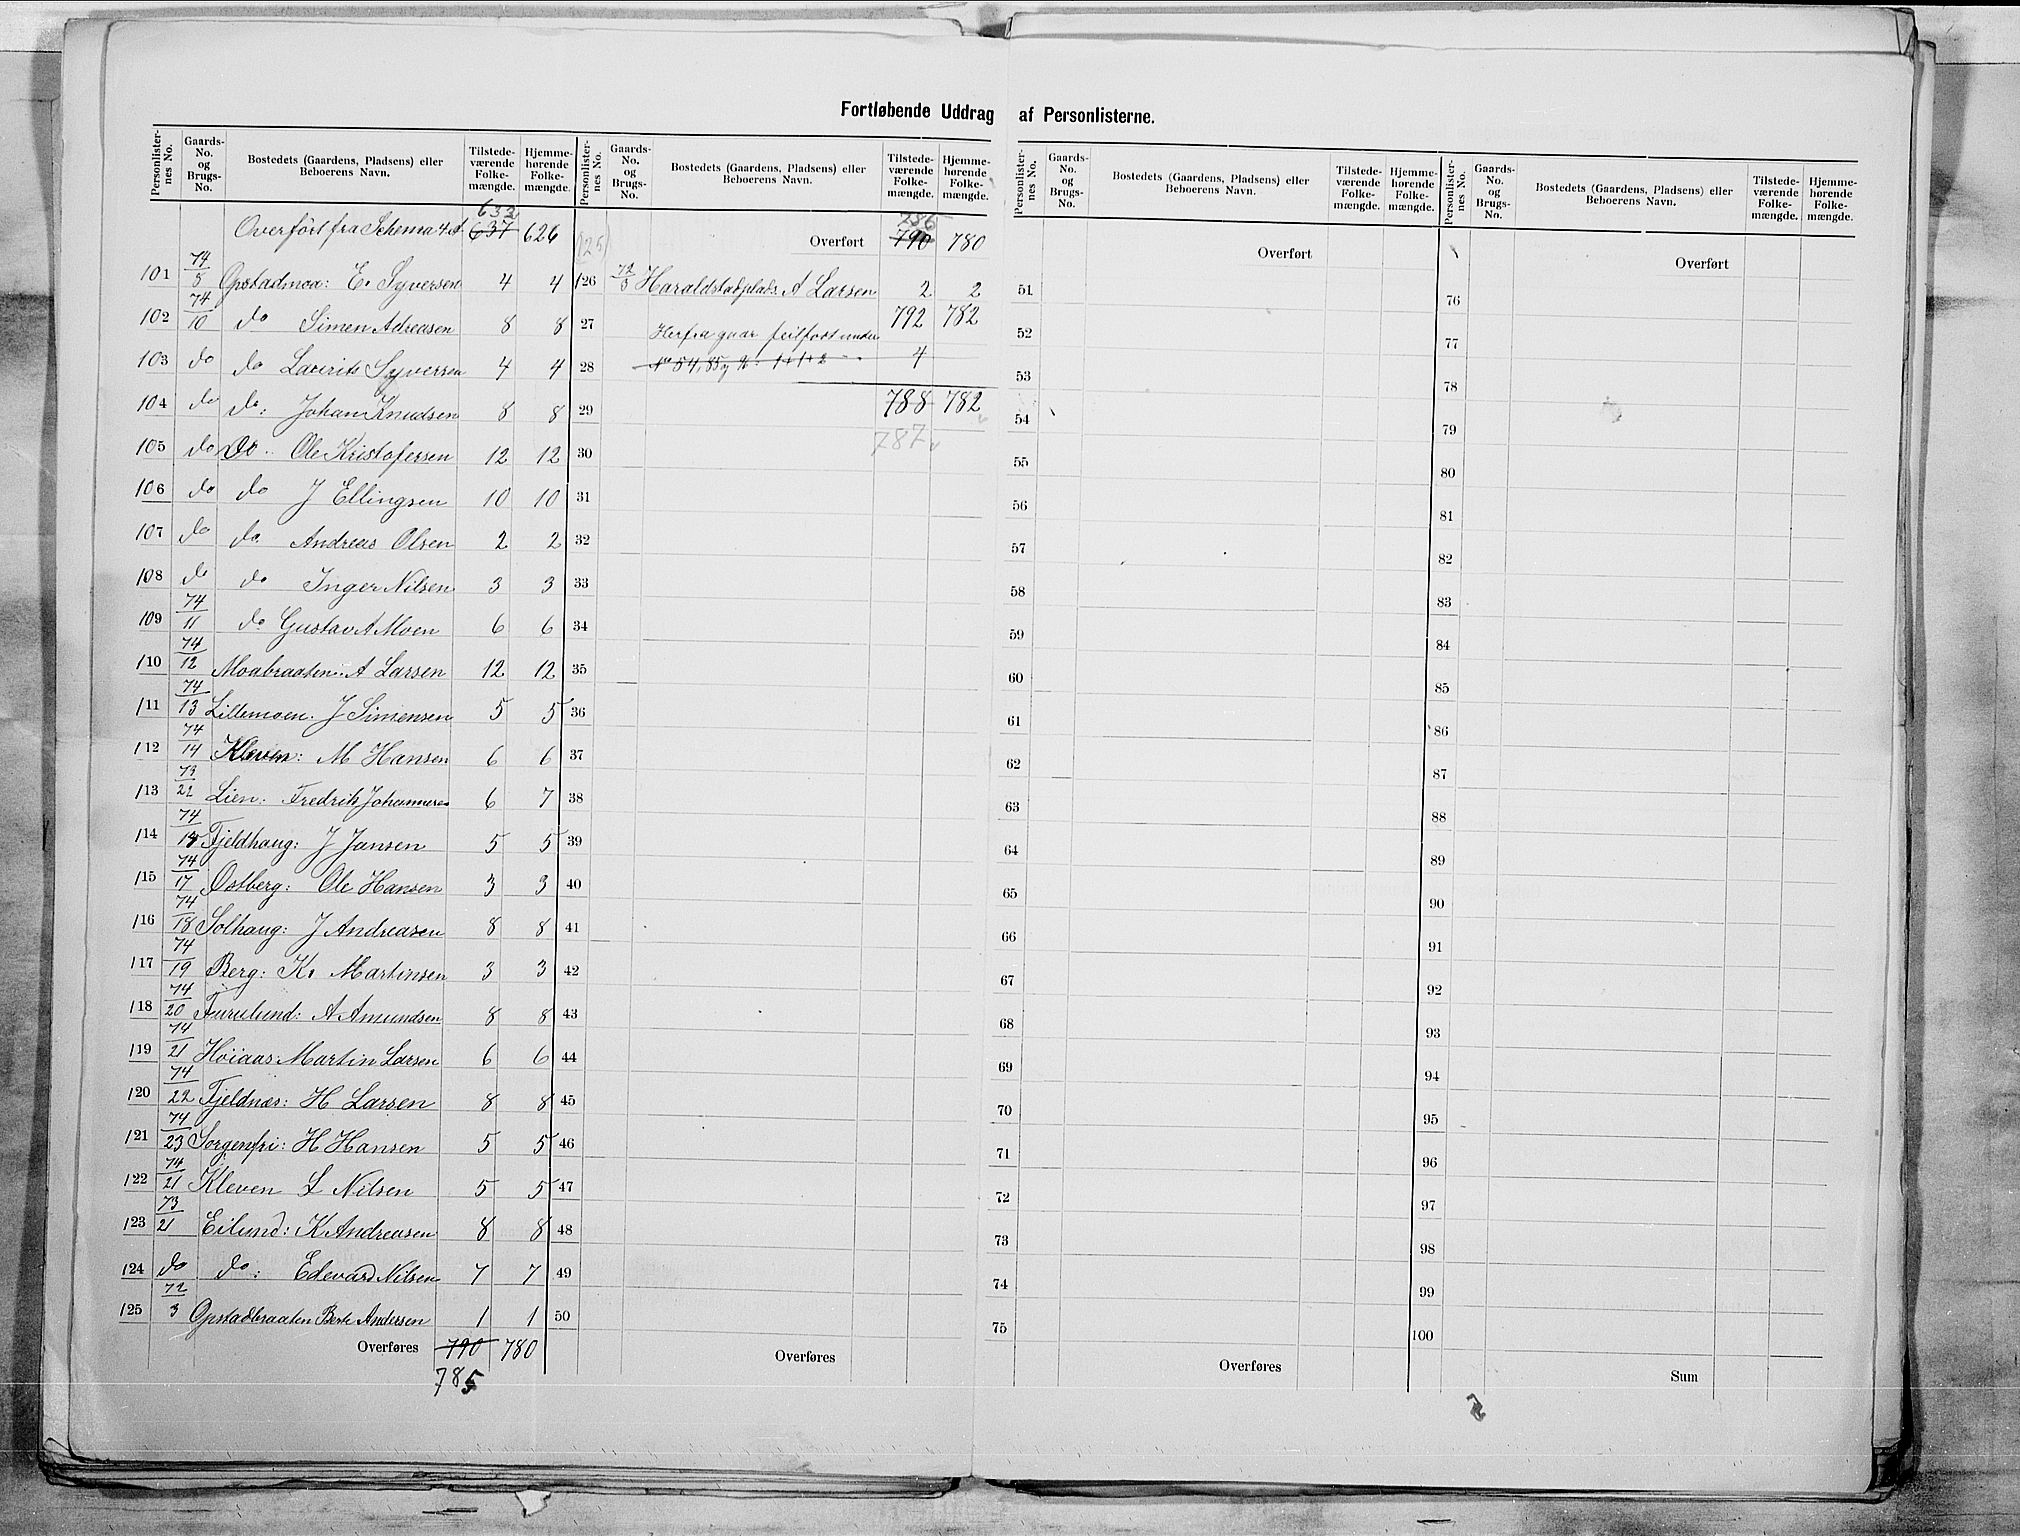 Fortløbende Uddrag af Personlisterne.
Personlister-nes No. Gaards-No. og Brugs-No. Bostedets (Gaardens, Pladsens) eller Beboerens Navn. Tilstede-værende Folke-mængde. Hjemme-hørende Folke-mængde.
632
Overført fra Schema 4 A 637 626
101 74/8 Opstadmoa: E. Syversen 4 4
102 74/10 do Simen Adreasen 8 8
103 do do Lavrits Syversen 4 4
104 do do: Johan Knudsen 8 8
105 do Do Ole Kristofersen 12 12
106 do do J Ellingsen 10 10
107 do do Andreas Olsen 2 2
108 do do Inger Nilsen 3 3
109 74/11 do Gustav A Moen 6 6
110 74/12 Moabraaten: A Larsen 12 12
111 74/13 Lillemoen. J Simensen 5 5
112 74/14 Kleven: M Hansen 6 6
113 73/22 Lien: Fredrik Johannesen 6 7
114 74/15 Fjeldhaug: J Jansen 5 5
115 74/17 Østberg: Ole Hansen 3 3
116 74/18 Solhaug: J Andreasen 8 8
117 74/19 Berg: K. Martinsen 3 3
118 74/20 Furulund: A Amundsen 8 8
119 74/21 Høiaas: Martin Larsen 6 6
120 74/22 Fjeldnæs: H Larsen 8 8
121 74/23 Sorgenfri: H Hansen 5 5
122 74/21 Kleven L Nilsen 5 5
123 73/21 Eilund: K Andreasen 8 8
124 do do: Edevard Nilsen 7 7
125 72/3 Opstadbraaten Berte Andersen 1 1
Overføres 790 780
785
Personlister-nes No. Gaards-No. og Brugs-No. Bostedets (Gaardens, Pladsens) eller Beboerens Navn. Tilstede-værende Folke-mængde. Hjemme-hørende Folke-mængde.
786
125 Overført 790 780
126 72/5 Haraldstadplads. A Larsen 2 2
27 792 782
Herfra gaar feilført under
28 No 54, 85 og 1+1+2 4
29 788 782
787
30
31
32
33
34
35
36
37
38
39
40
41
42
43
44
45
46
47
48
49
50
Overføres
Personlister-nes No. Gaards-No. og Brugs-No. Bostedets (Gaardens, Pladsens) eller Beboerens Navn. Tilstede-værende Folke-mængde. Hjemme-hørende Folke-mængde.
Overført
51
52
53
54
55
56
57
58
59
60
61
62
63
64
65
66
67
68
69
70
71
72
73
74
75
Overføres
Personlister-nes No. Gaards-No. og Brugs-No. Bostedets (Gaardens, Pladsens) eller Beboerens Navn. Tilstede-værende Folke-mængde. Hjemme-hørende Folke-mængde.
Overført
76
77
78
79
80
81
82
83
84
85
86
87
88
89
90
91
92
93
94
95
96
97
98
99
100
Sum